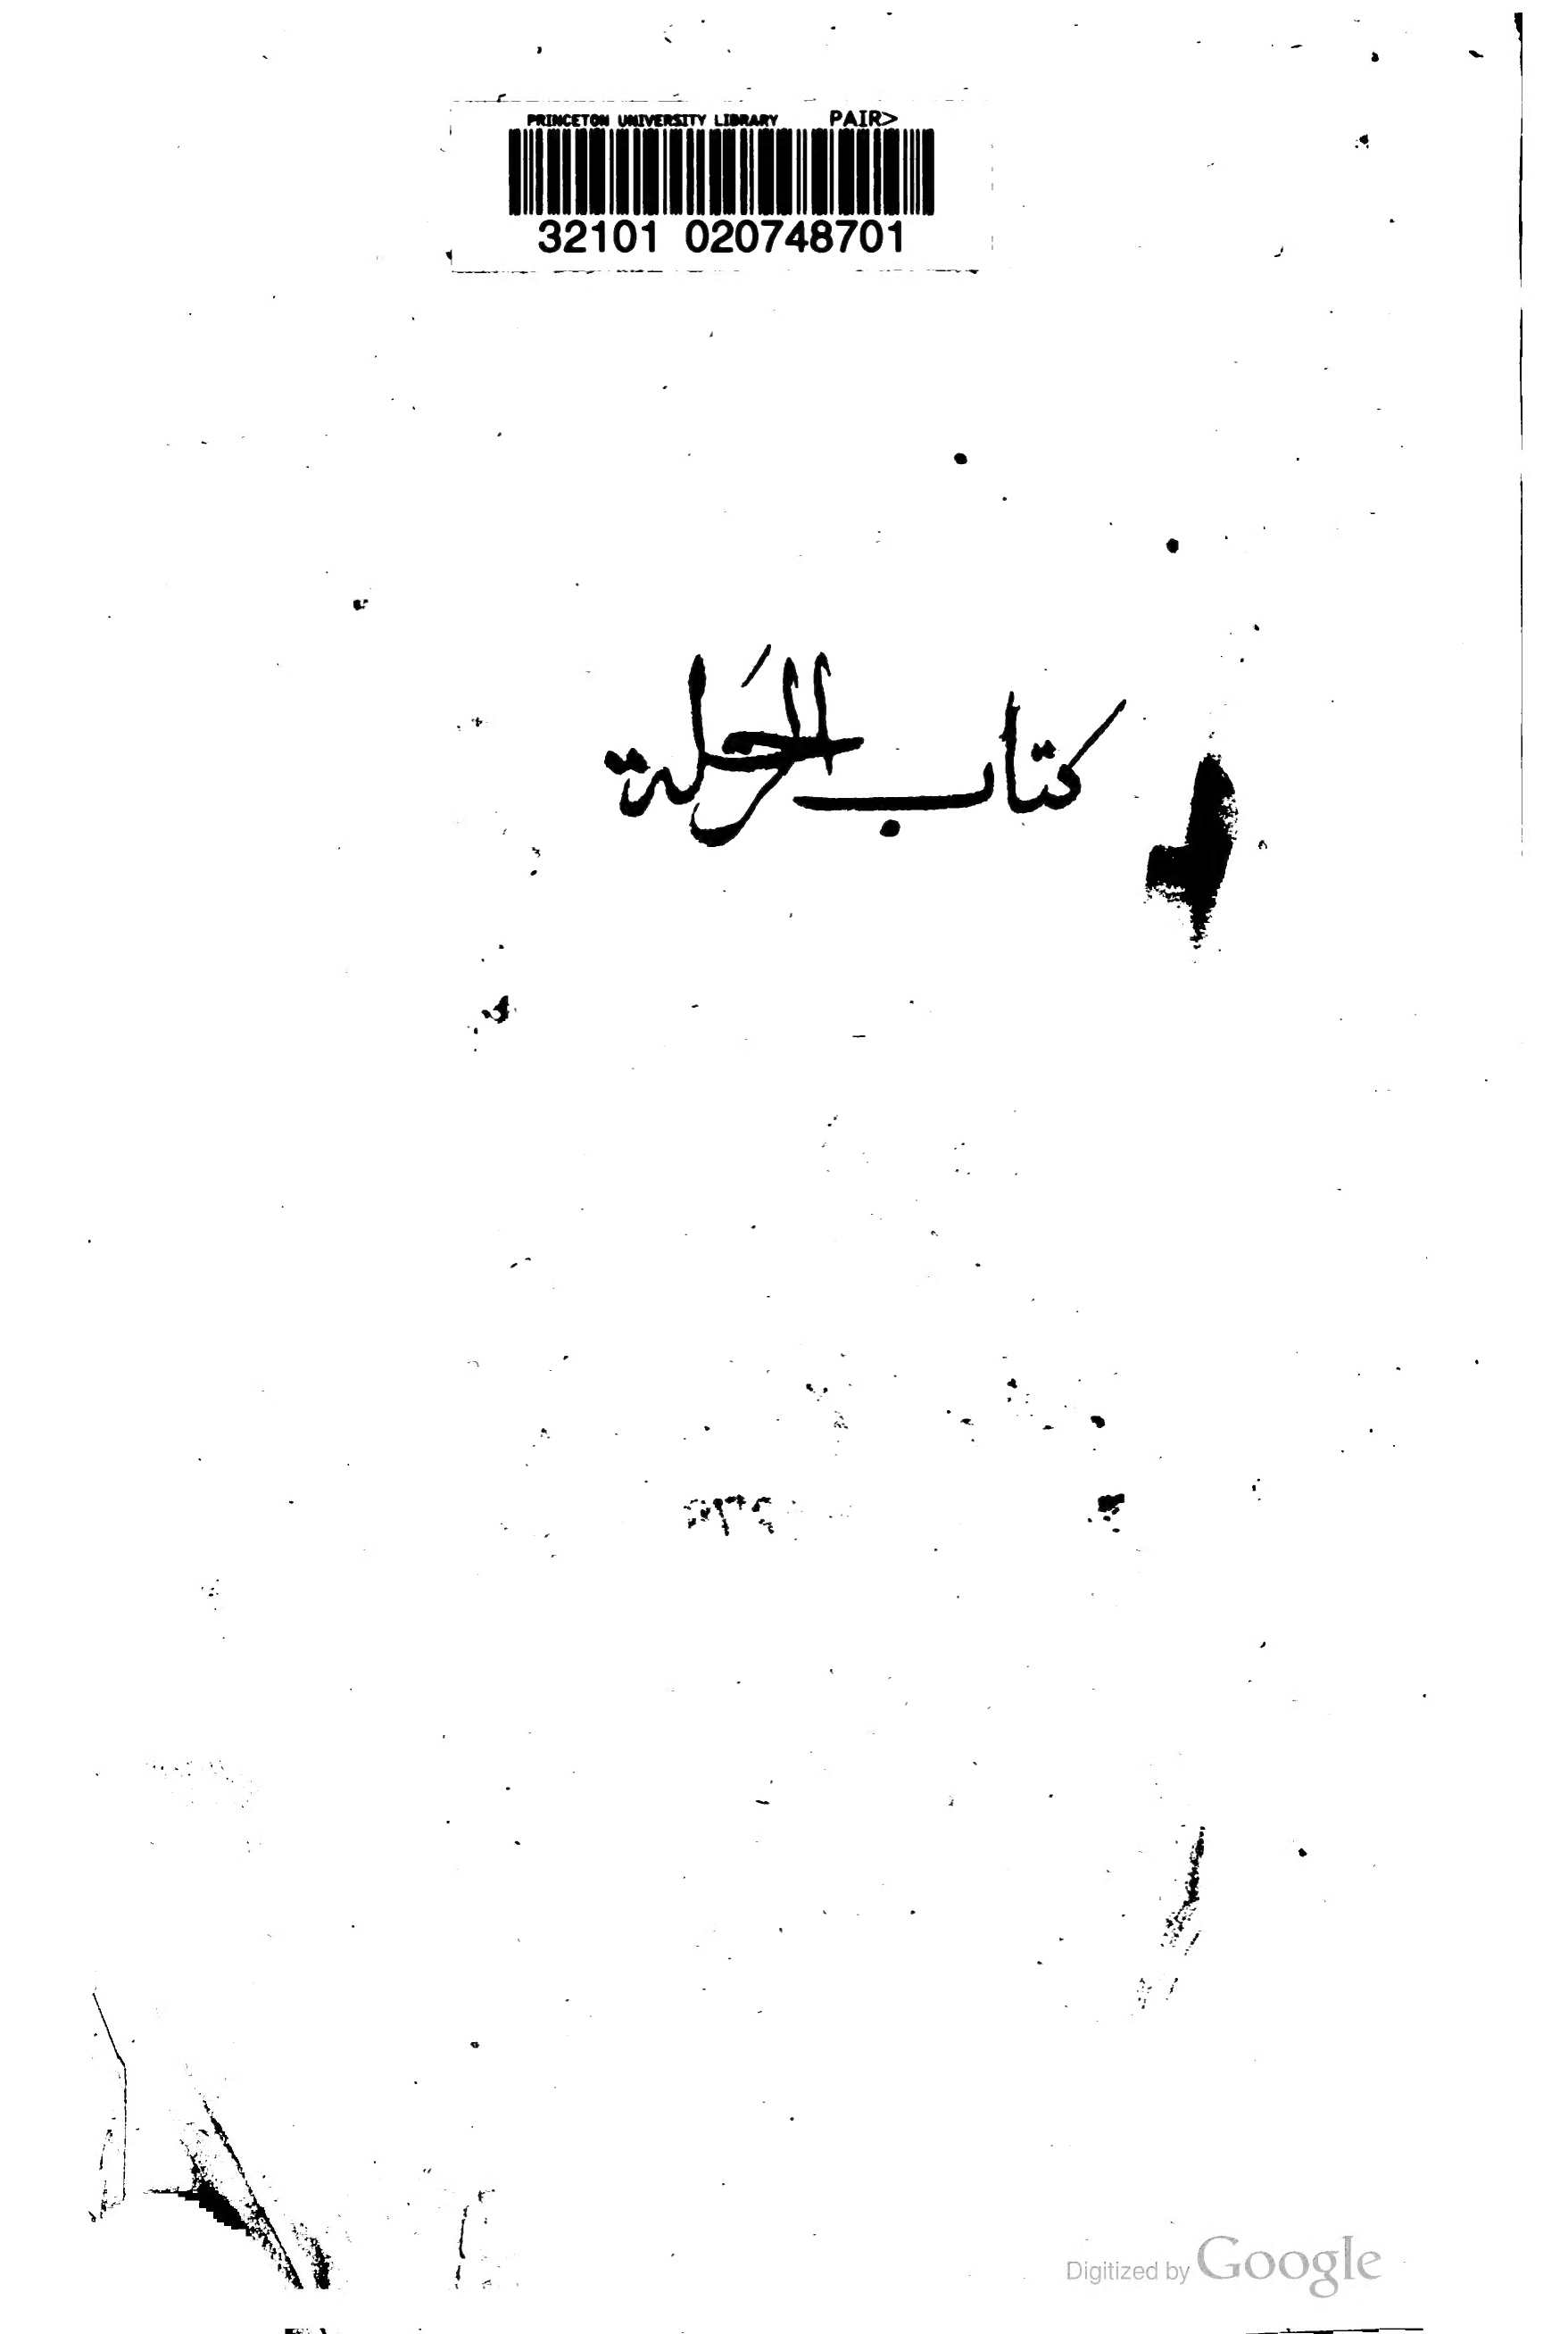 PRINCETON UNIVERSITY LIBRARY PAIR>
32101 020748701
كتاب الرحلة
Digitized by Google